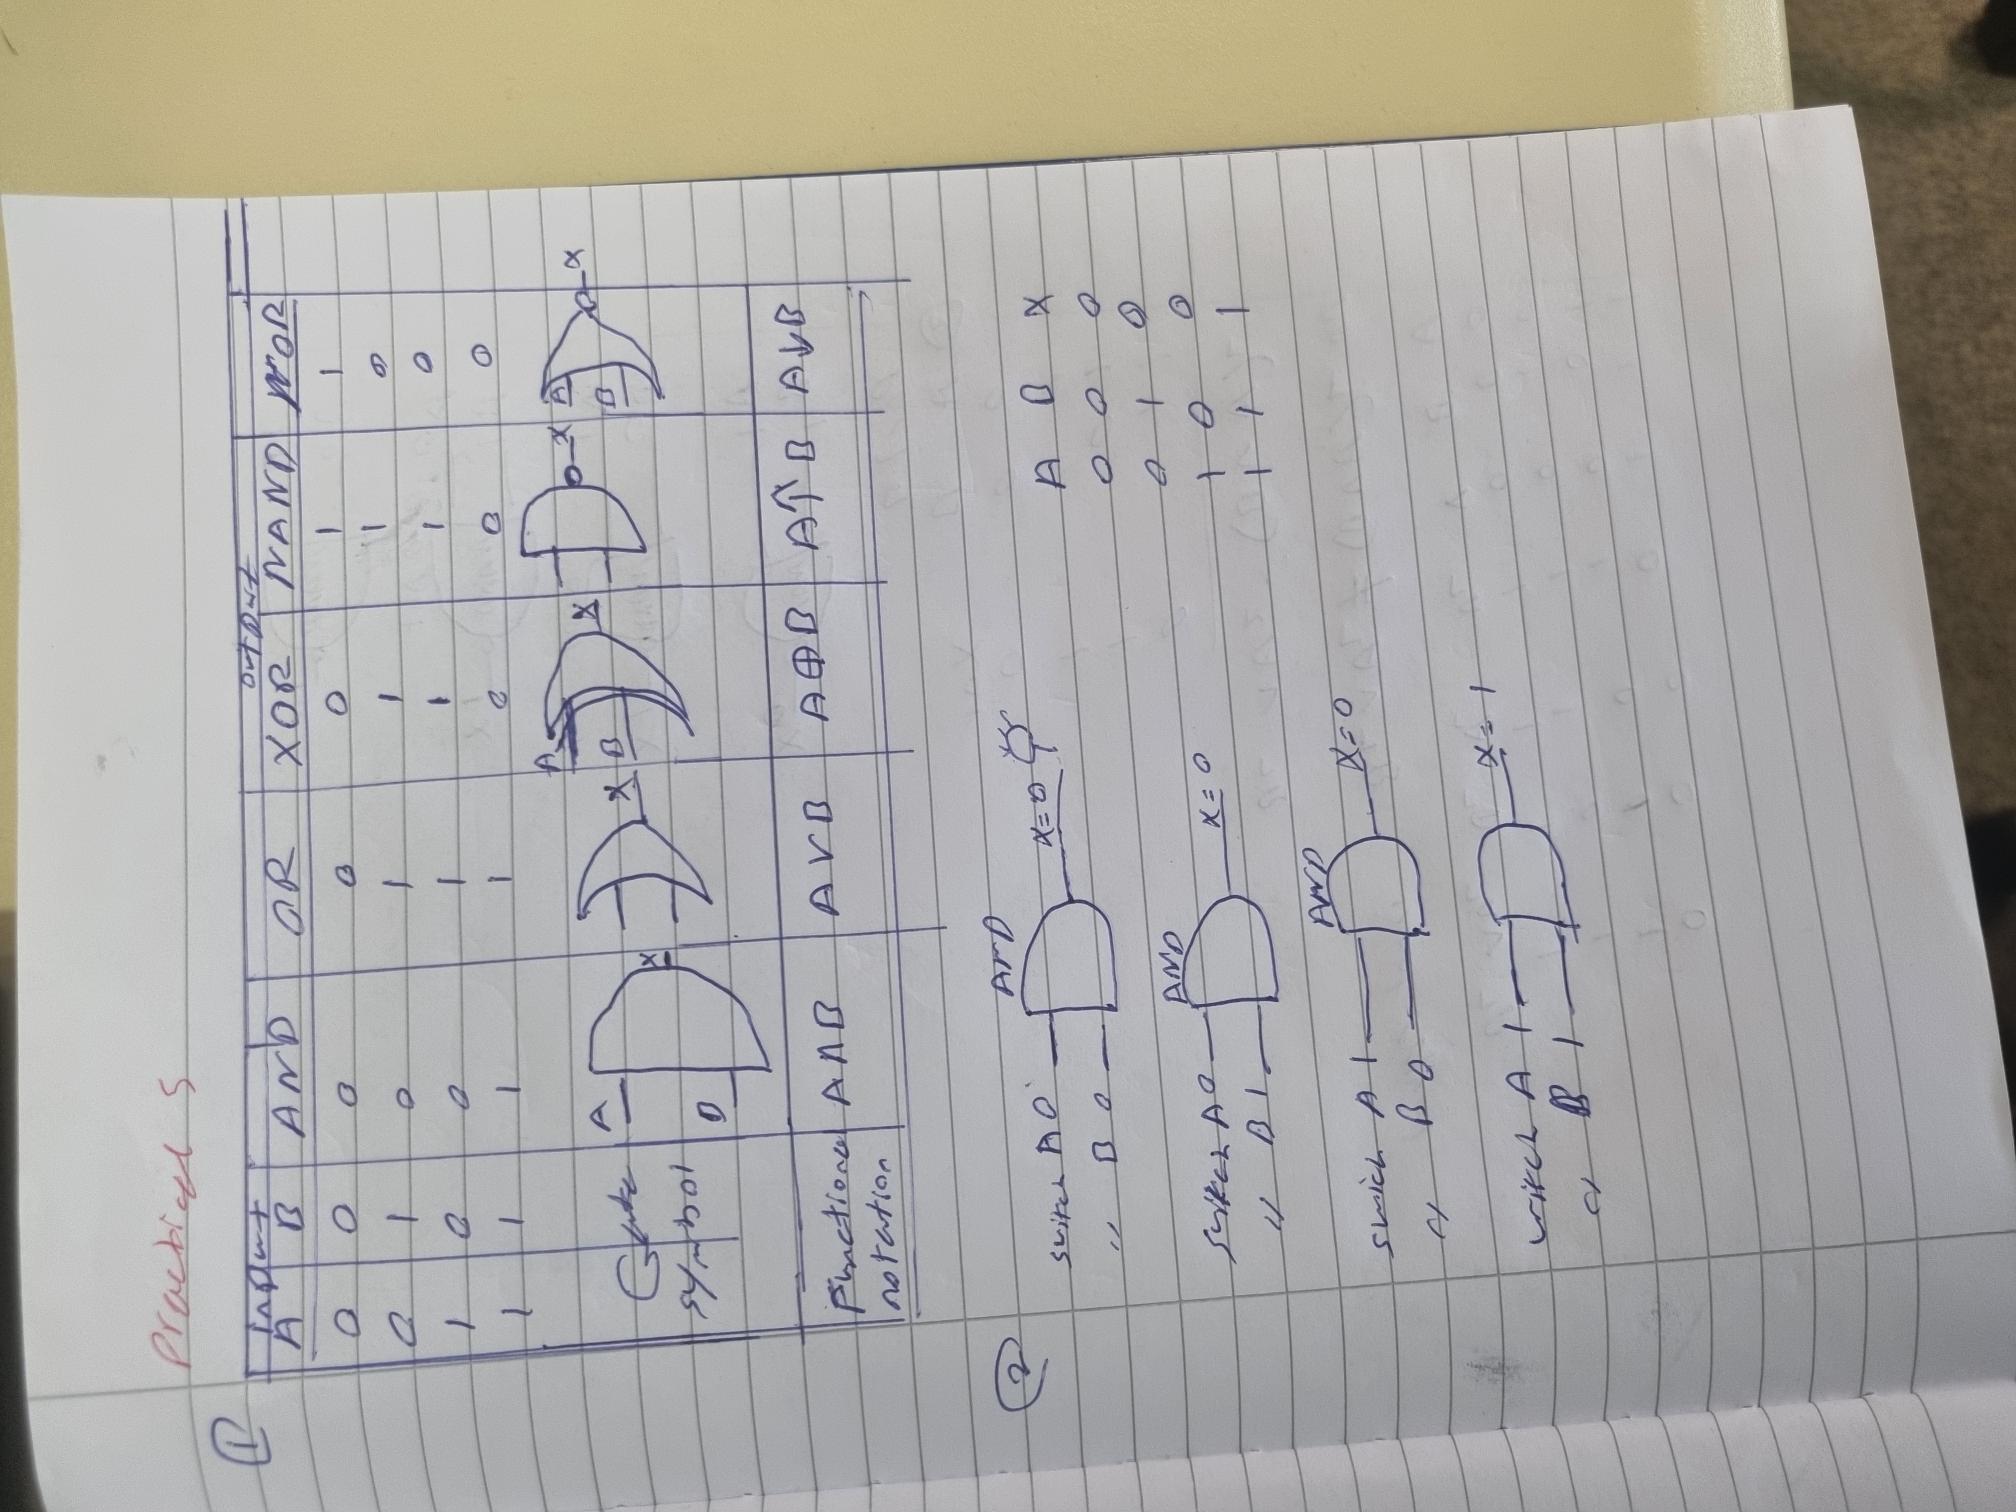 Practical 5
①
Input output
A B AND OR XOR NAND NOR
0 0 0 0 0 1 1
0 1 0 1 1 1 0
1 0 0 1 1 1 0
1 1 1 1 0 0 0
Gate symbol
A B X
X
A B X
X
A B X
Functional notation
A∧B A∨B A⊕B A↑B A↓B
②
AND
switch A 0 X=0
〃 B 0
AND
switch A 0 X=0
〃 B 1
AND
swich A 1 X=0
〃 B 0
witch A 1 X=1
〃 B 1
A B X
0 0 0
0 1 0
1 0 0
1 1 1